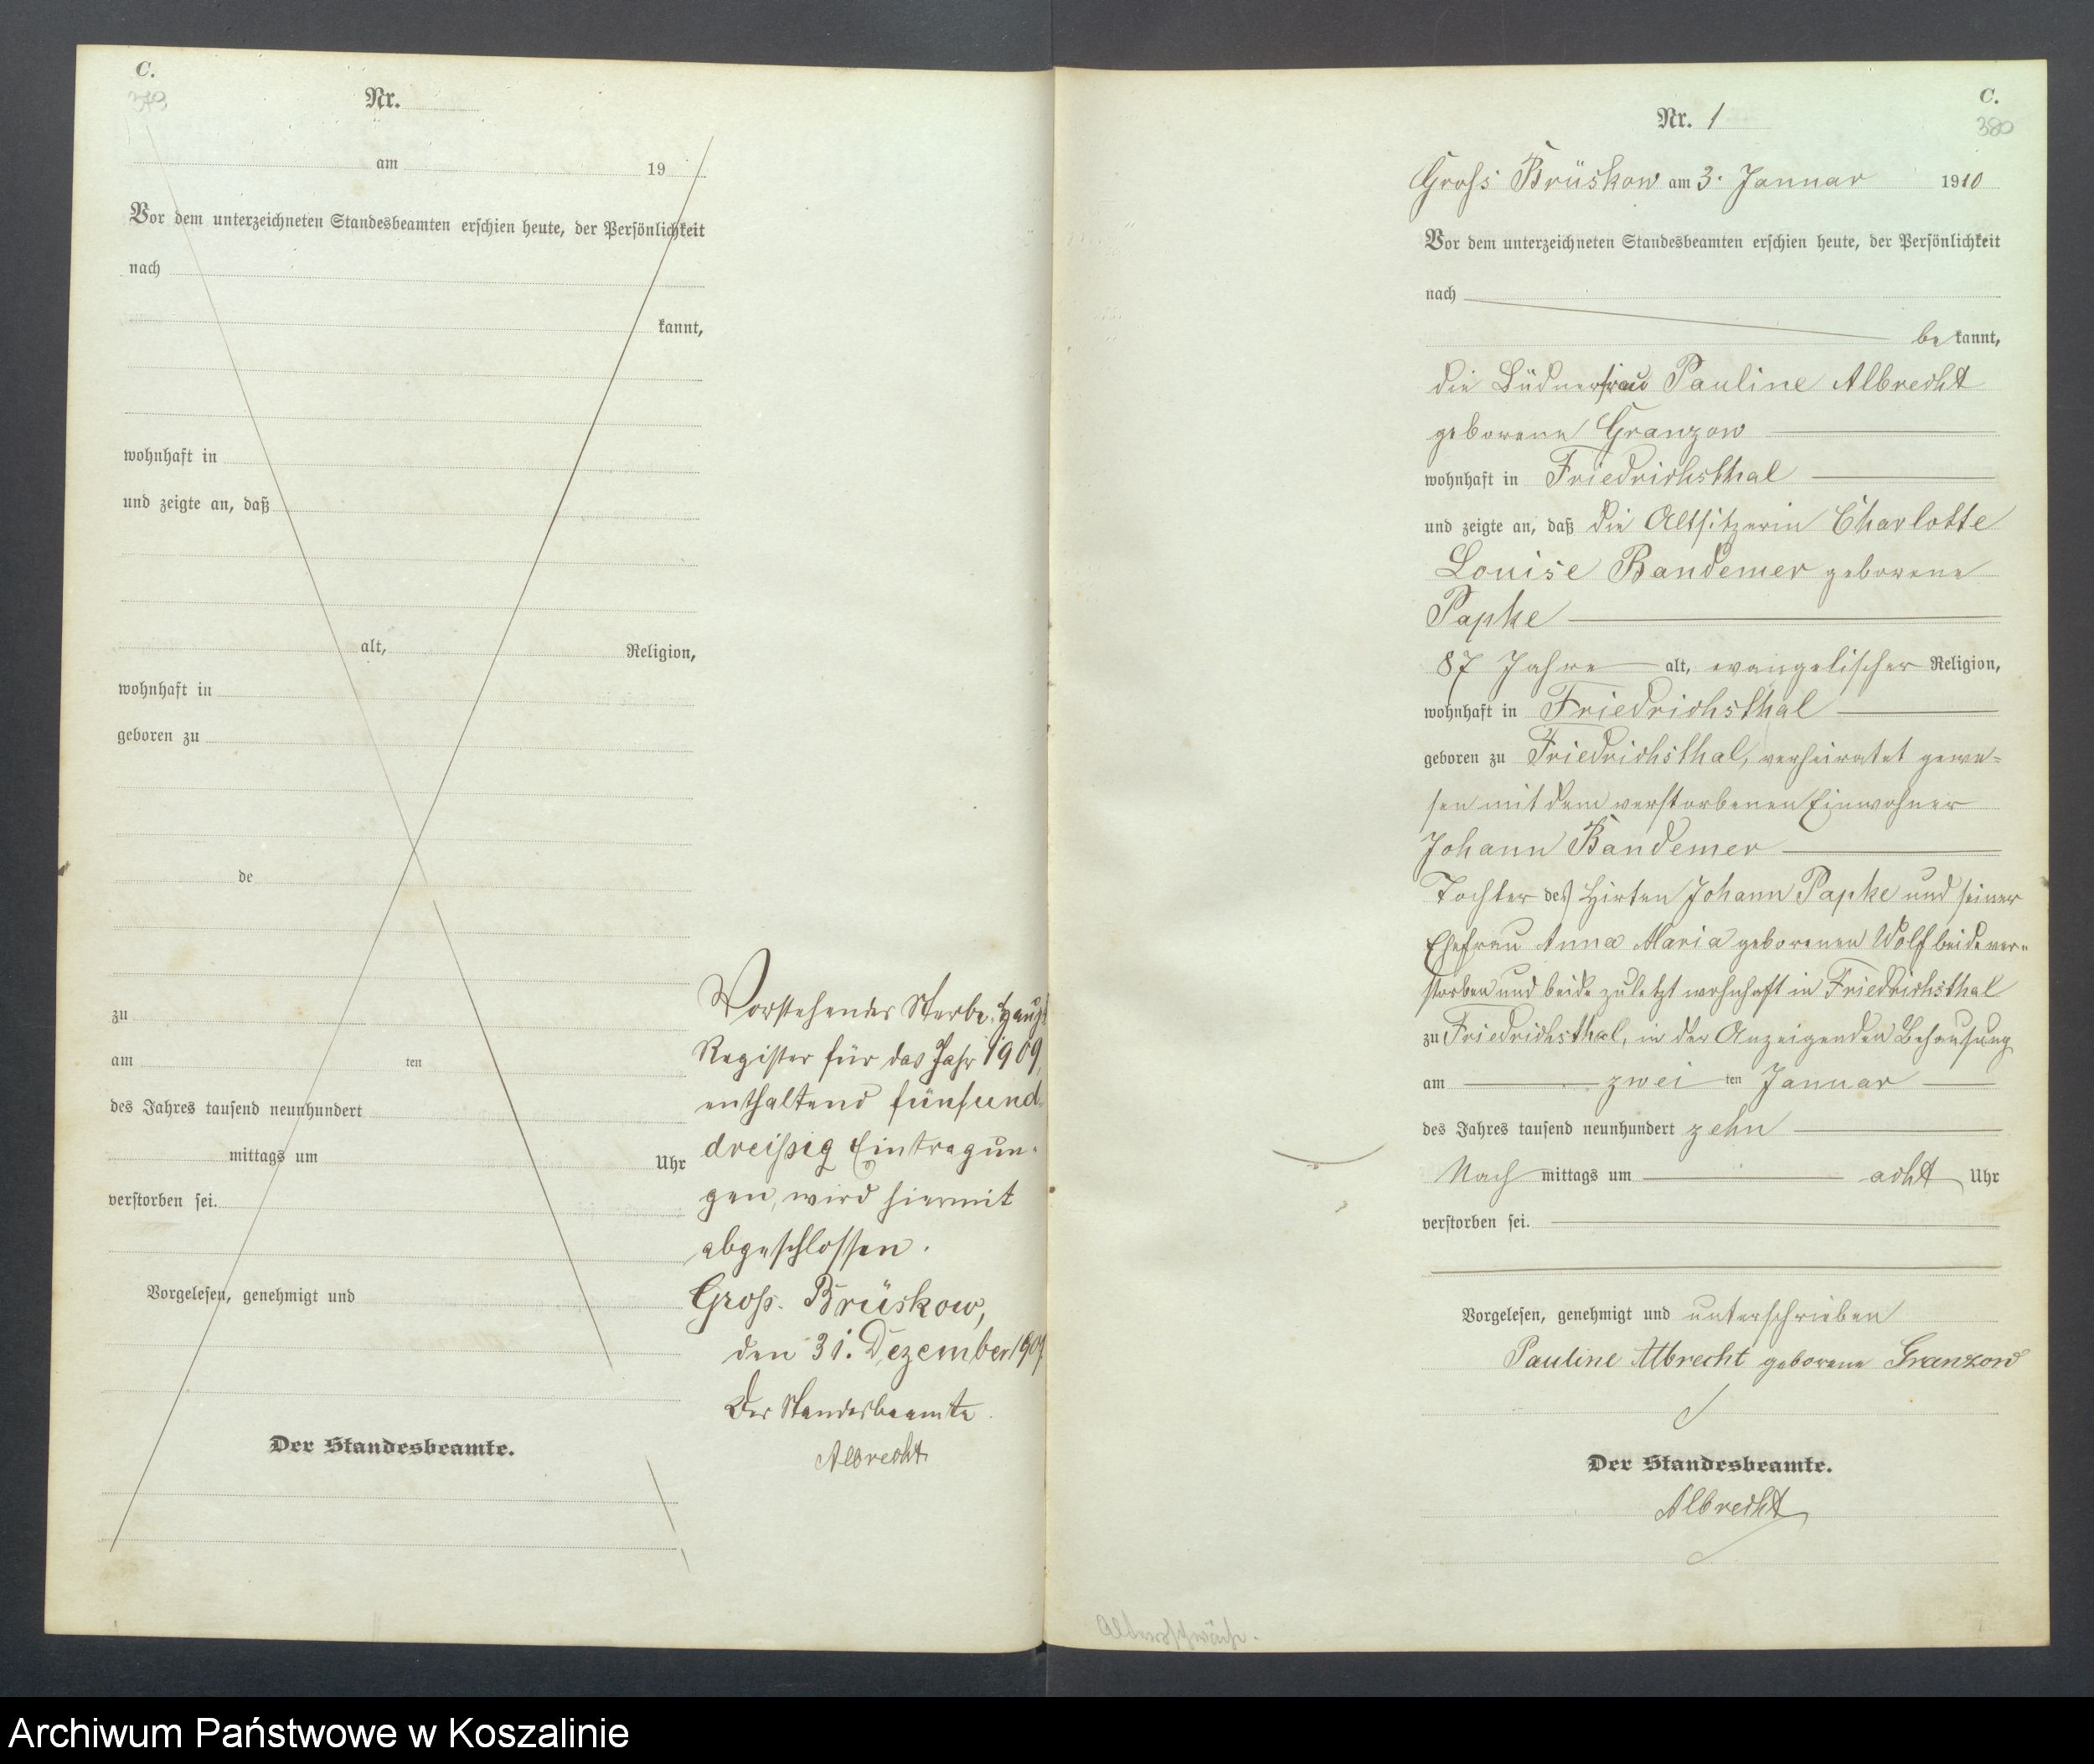 C.
379
Nr.
am 19
Vor dem unterzeichneten Standesbeamten erschien heute, der Persönlichkeit
nach
kannt,
wohnhaft in
und zeigte an, daß
alt, Religion,
wohnhaft in
geboren zu
de
zu
am ten
des Jahres tausend neunhundert
mittags um Uhr
verstorben sei.
Vorgelesen, genehmigt und
Der Standesbeamte.
Vorstehendes Sterbe-Haupt
Register für das Jahr 1909,
enthaltend fünfund-
dreißig Eintragun-
gen, wird hiermit
abgeschlossen.
Gross-Brüskow,
den 31. Dezember 1909.
Der Standesbeamte.
Albrecht
C.
380
Nr. 1
Gross Brüskow am 3. Januar 1910
Vor dem unterzeichneten Standesbeamten erschien heute, der Persönlichkeit
nach
be kannt,
die Büdnerfrau Pauline Albrecht
geborene Granzow
wohnhaft in Friedrichsthal
und zeigte an, daß die Altsitzerin Charlotte
Louise Bandemer geborene
Papke
87 Jahre alt, evangelischer Religion,
wohnhaft in Friedrichsthal
geboren zu Friedrichsthal, verheiratet gewe=
sen mit dem verstorbenen Einwohner
Johann Bandemer
Tochter des Hirten Johann Papke und seiner
Ehefrau Anna Maria geborenen Wolf beide ver=
storben und beide zuletzt wohnhaft in Friedrichsthal
zu Friedrichsthal, in der Anzeigenden Behausung
am zwei ten Januar
des Jahres tausend neunhundert zehn
Nach mittags um acht Uhr
verstorben sei.
Vorgelesen, genehmigt und unterschrieben
Pauline Albrecht geborene Granzow
Der Standesbeamte.
Albrecht
Altersschwäche.
Archiwum Państwowe w Koszalinie